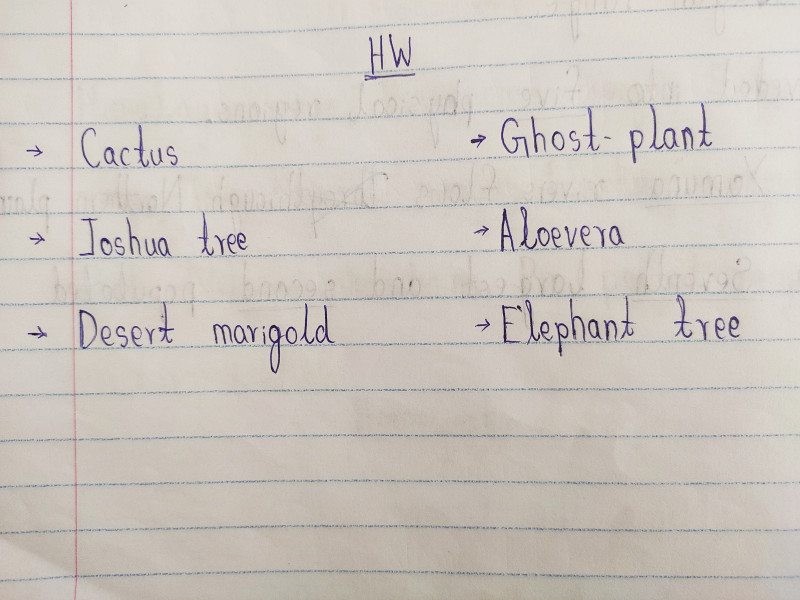 HW
→ Cactus → Ghost-plant
→ Joshua tree → Aloevera
→ Desert marigold → Elephant tree